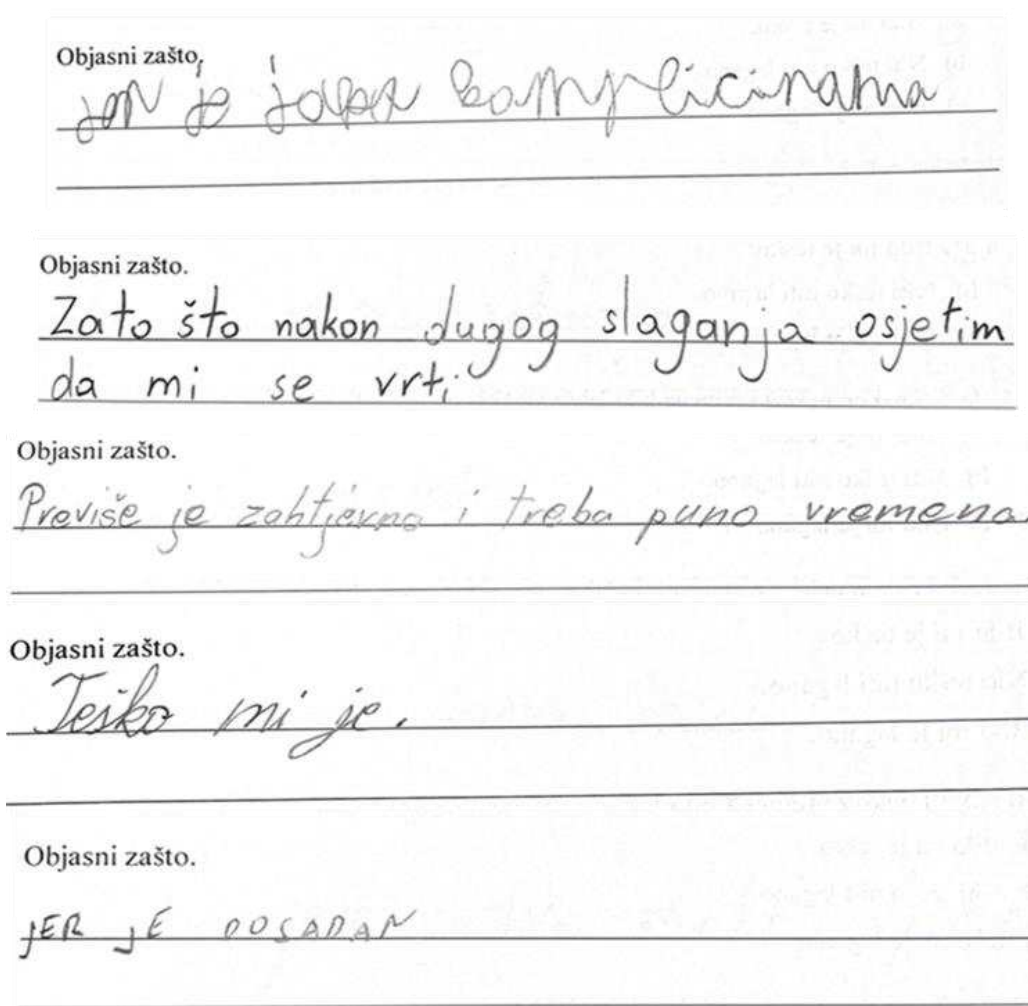 Objasni zašto.
je
Objasni zašto.
Zato što nakon dugog slaganja osjetim
da mi se vrti
Objasni zašto.
Previše je zahtjevno i treba puno vremena.
Objasni zašto.
Teško mi je.
Objasni zašto.
JER JE DOSADAN